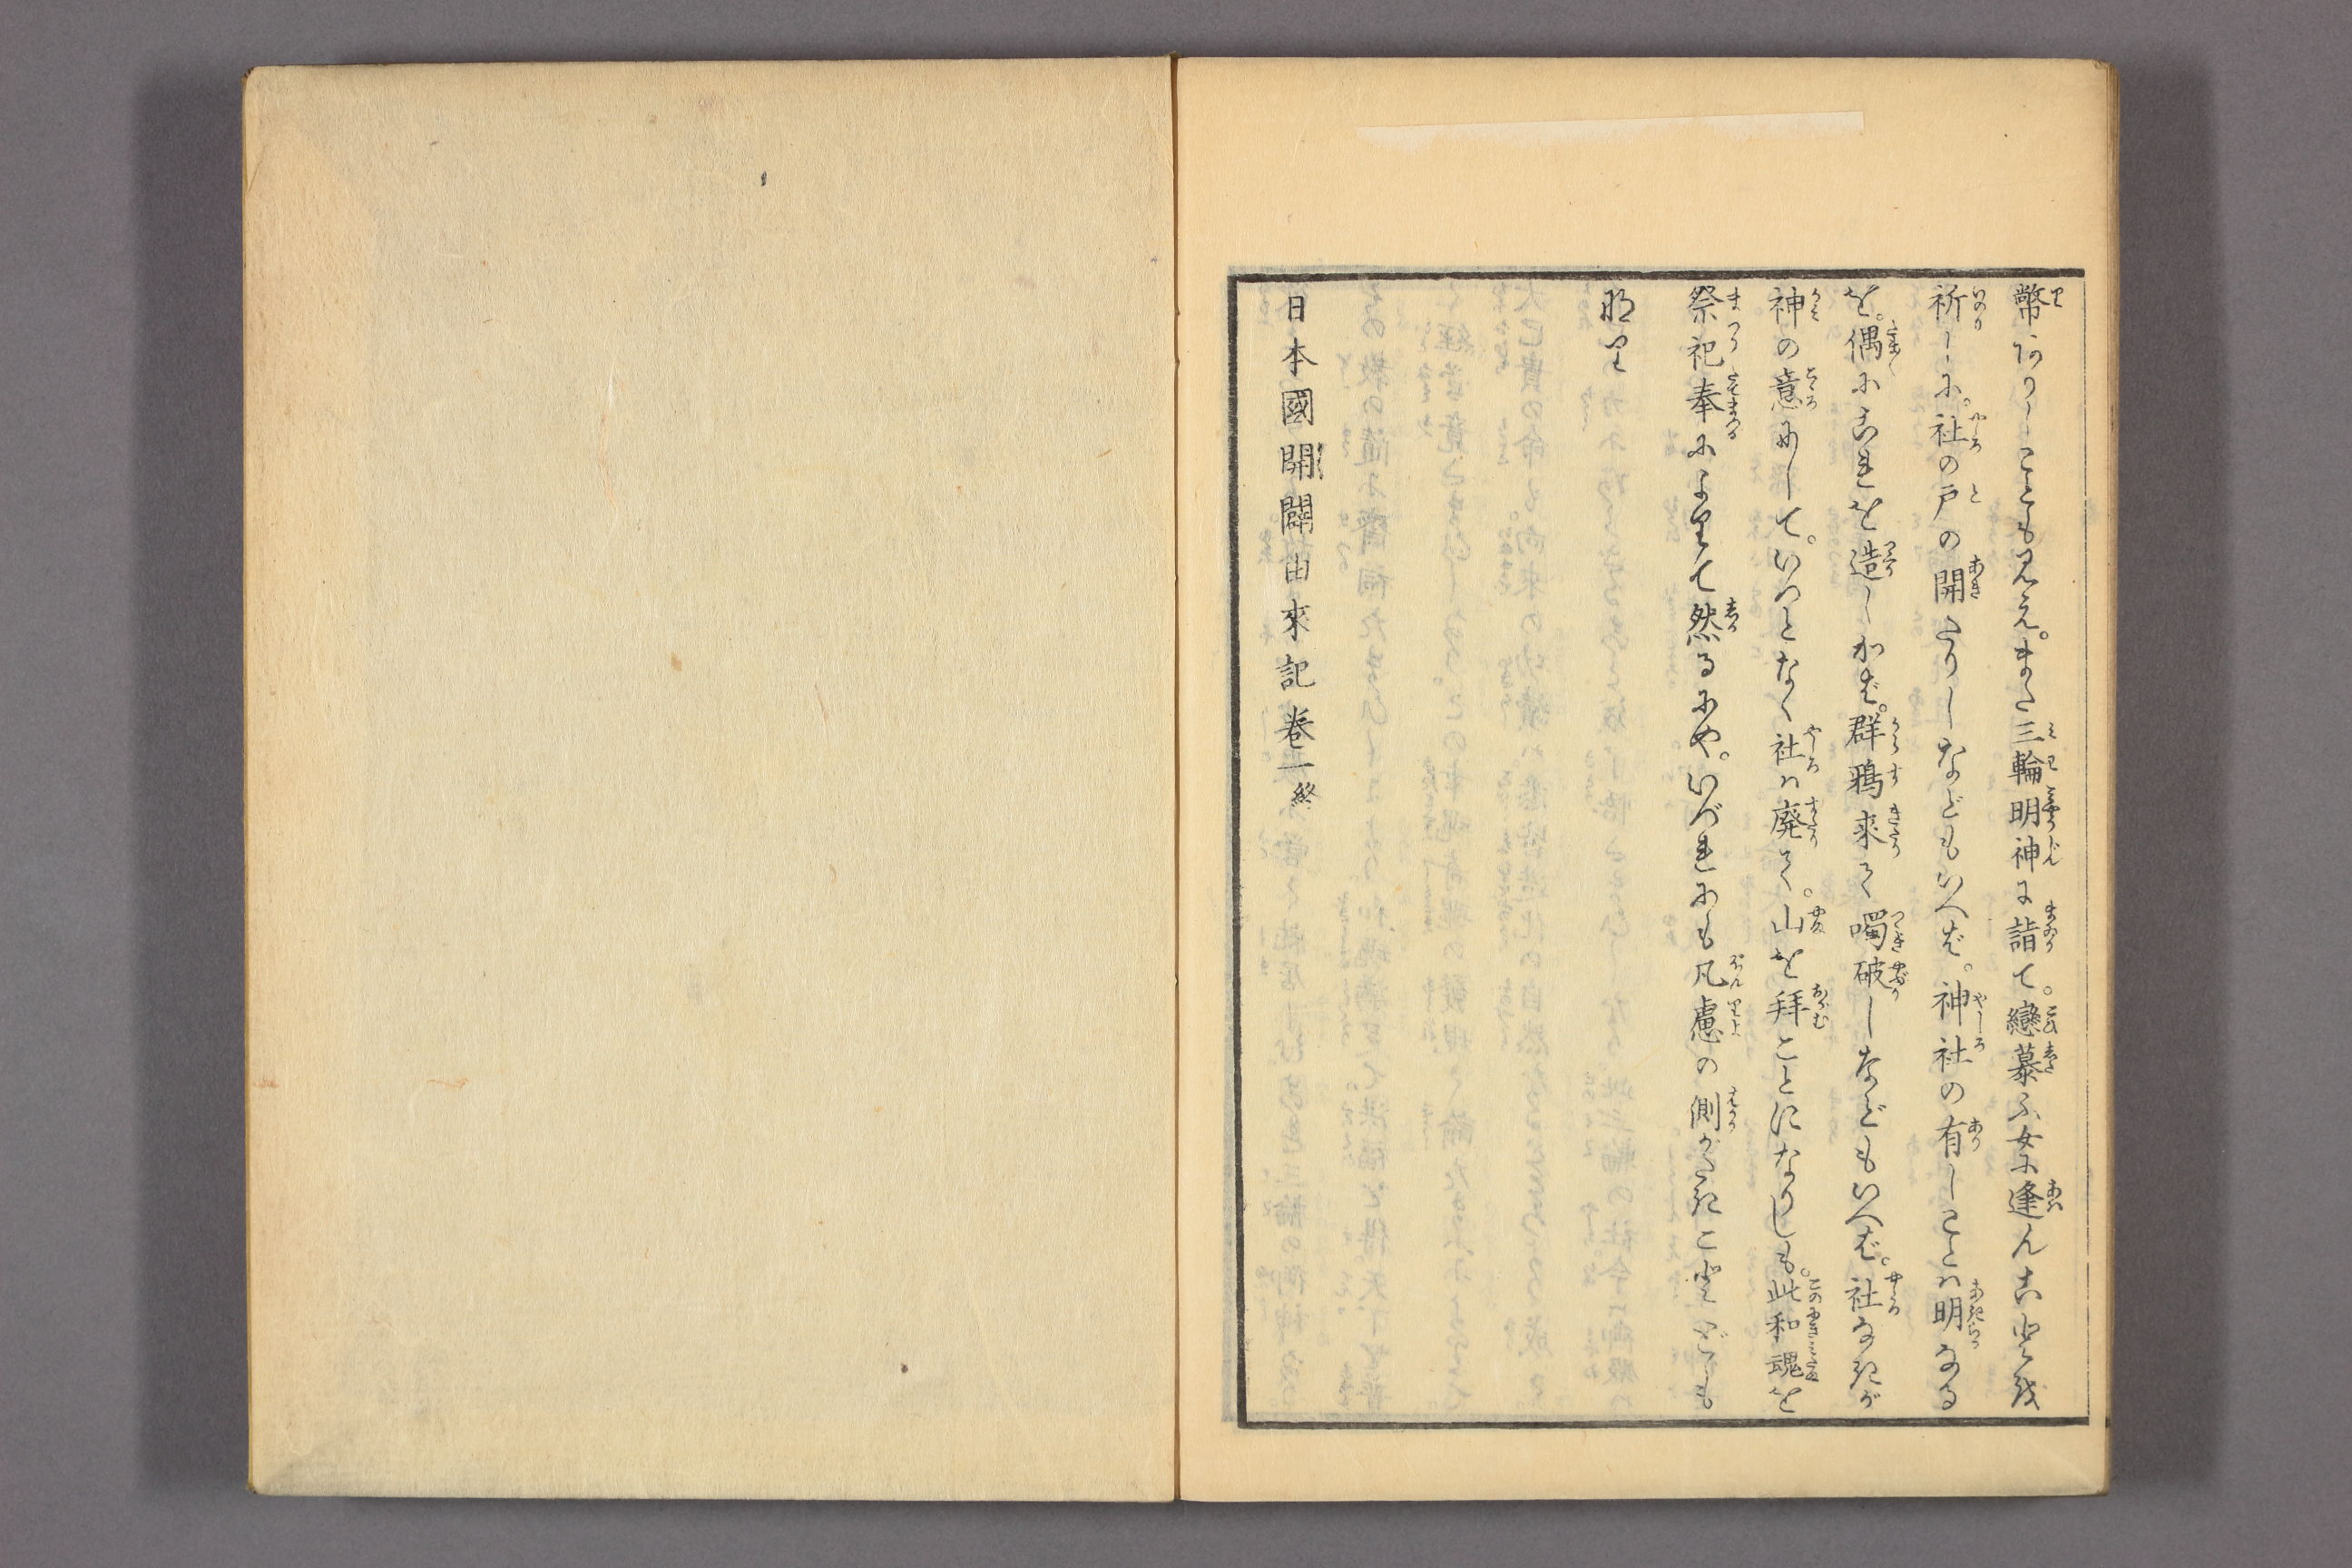 幣ありしことも見え。また三輪明神に詣て。戀慕ふ女に逢んことを
祈しに。社の戸の開たりしなどもいへば。神社の有しことハ明なる
を。偶にこれを造しかば。群鴉来て啄破しなどもいへば。社なきが
神の意にして。いつとなく社ハ廃て。山を拝ことになりしも。此和魂を
祭祀奉によりて然るにや。いづれにも凡慮の測がたきことども
也けり
日本國開闢由來記卷一終